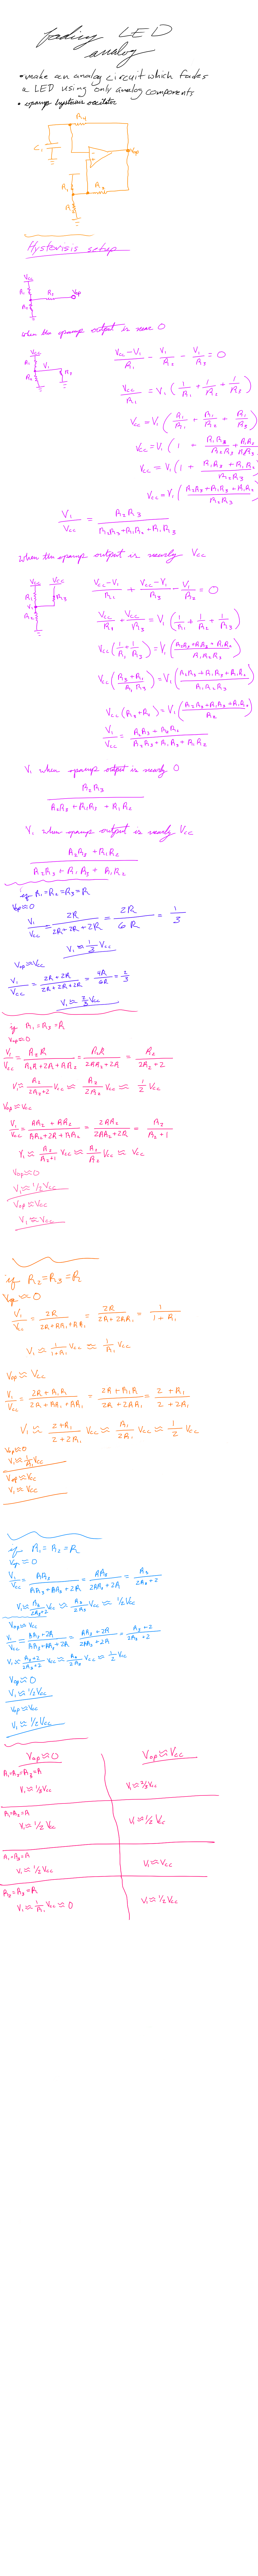 fading LED
analog
• make an analog circuit which fades
a LED using only analog components
• opamp hysterisis oscilator
R4
C1
Vop
R1
R3
R2
Hysterisis setup
Vcc
R1
R3
Vop
R2
when the opamp output is near 0
Vcc
R1
V1
R2
R3
(Vcc-V1)/R1 - V1/R2 - V1/R3 = 0
Vcc/R1 = V1(1/R1 + 1/R2 + 1/R3)
Vcc = V1(R1/R1 + R1/R2 + R1/R3)
Vcc = V1(1 + R1R3/R2R3 + R1R2/R2R3)
Vcc = V1(1 + (R1R3 + R1R2)/R2R3)
Vcc = V1((R2R3 + R1R3 + R1R2)/R2R3)
V1/Vcc = R2R3/(R2R3+R1R2+R1R3)
When the opamp output is nearly Vcc
Vcc Vcc
R1
R3
V1
R2
(Vcc-V1)/R1 + (Vcc-V1)/R3 - V1/R2 = 0
Vcc/R1 + Vcc/R3 = V1(1/R1 + 1/R2 + 1/R3)
Vcc(1/R1 + 1/R3) = V1((R2R3+R1R3+R1R2)/R1R2R3)
Vcc((R3+R1)/R1R3) = V1((R2R3+R1R3+R1R2)/R1R2R3)
Vcc(R3+R1) = V1((R2R3+R1R3+R1R2)/R2)
V1/Vcc = (R2R3+R1R2)/(R2R3+R1R3+R1R2)
V1 when opamp output is nearly 0
R2R3/(R2R3+R1R3+R1R2)
V1 when opamp output is nearly Vcc
(R2R3+R1R2)/(R2R3+R1R3+R1R2)
if R1=R2=R3=R
Vop≈0
V1/Vcc = 2R/(2R+2R+2R) = 2R/6R = 1/3
V1≈1/3 Vcc
Vop≈Vcc
V1/Vcc = (2R+2R)/(2R+2R+2R) = 4R/6R = 2/3
V1≈2/3 Vcc
if R1=R3=R
Vop≈0
V1/Vcc = R2R/(R2R+2R+RR2) = R2R/(2RR2+2R) = R2/(2R2+2)
V1≈R2/(2R2+2) Vcc ≈ R2/2R2 Vcc ≈ 1/2 Vcc
Vop≈Vcc
V1/Vcc = (RR2+RR2)/(RR2+2R+RR2) = 2RR2/(2RR2+2R) = R2/(R2+1)
V1≈R2/(R2+1) Vcc ≈ R2/R2 Vcc ≈ Vcc
Vop≈0
V1≈1/2 Vcc
Vop≈Vcc
V1≈Vcc
if R2=R3=R
Vop≈0
V1/Vcc = 2R/(2R+RR1+RR1) = 2R/(2R+2RR1) = 1/(1+R1)
V1≈1/(1+R1) Vcc ≈ 1/R1 Vcc
Vop≈Vcc
V1/Vcc = (2R+R1R)/(2R+RR1+RR1) = (2R+R1R)/(2R+2RR1) = (2+R1)/(2+2R1)
V1≈(2+R1)/(2+2R1) Vcc ≈ R1/2R1 Vcc ≈ 1/2 Vcc
Vop≈0
V1≈1/R1 Vcc
Vop≈Vcc
V1≈Vcc
if R1=R2=R
Vop≈0
V1/Vcc = RR3/(RR3+RR3+2R) = RR3/(2RR3+2R) = R3/(2R3+2)
V1≈R3/(2R3+2) Vcc ≈ R3/2R3 Vcc ≈ 1/2Vcc
Vop≈Vcc
V1/Vcc = (RR3+2R)/(RR3+RR3+2R) = (RR3+2R)/(2RR3+2R) = (R3+2)/(2R3+2)
V1≈(R3+2)/(2R3+2) Vcc ≈ R3/2R3 Vcc ≈ 1/2 Vcc
Vop≈0
V1≈1/2Vcc
Vop≈Vcc
V1≈1/2Vcc
Vop≈0 Vop≈Vcc
R1=R2=R3=R
V1≈1/3Vcc V1≈2/3Vcc
R1=R2=R
V1≈1/2 Vcc V1≈1/2Vcc
R1=R3=R
V1≈1/2Vcc V1≈Vcc
R2=R3=R
V1≈1/R1 Vcc≈0 V1≈1/2Vcc